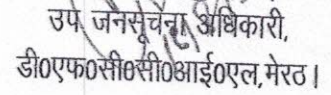 उप जनसूचना अधिकारी,
डी0एफ0सी0सी0आई0एल,मेरठ।